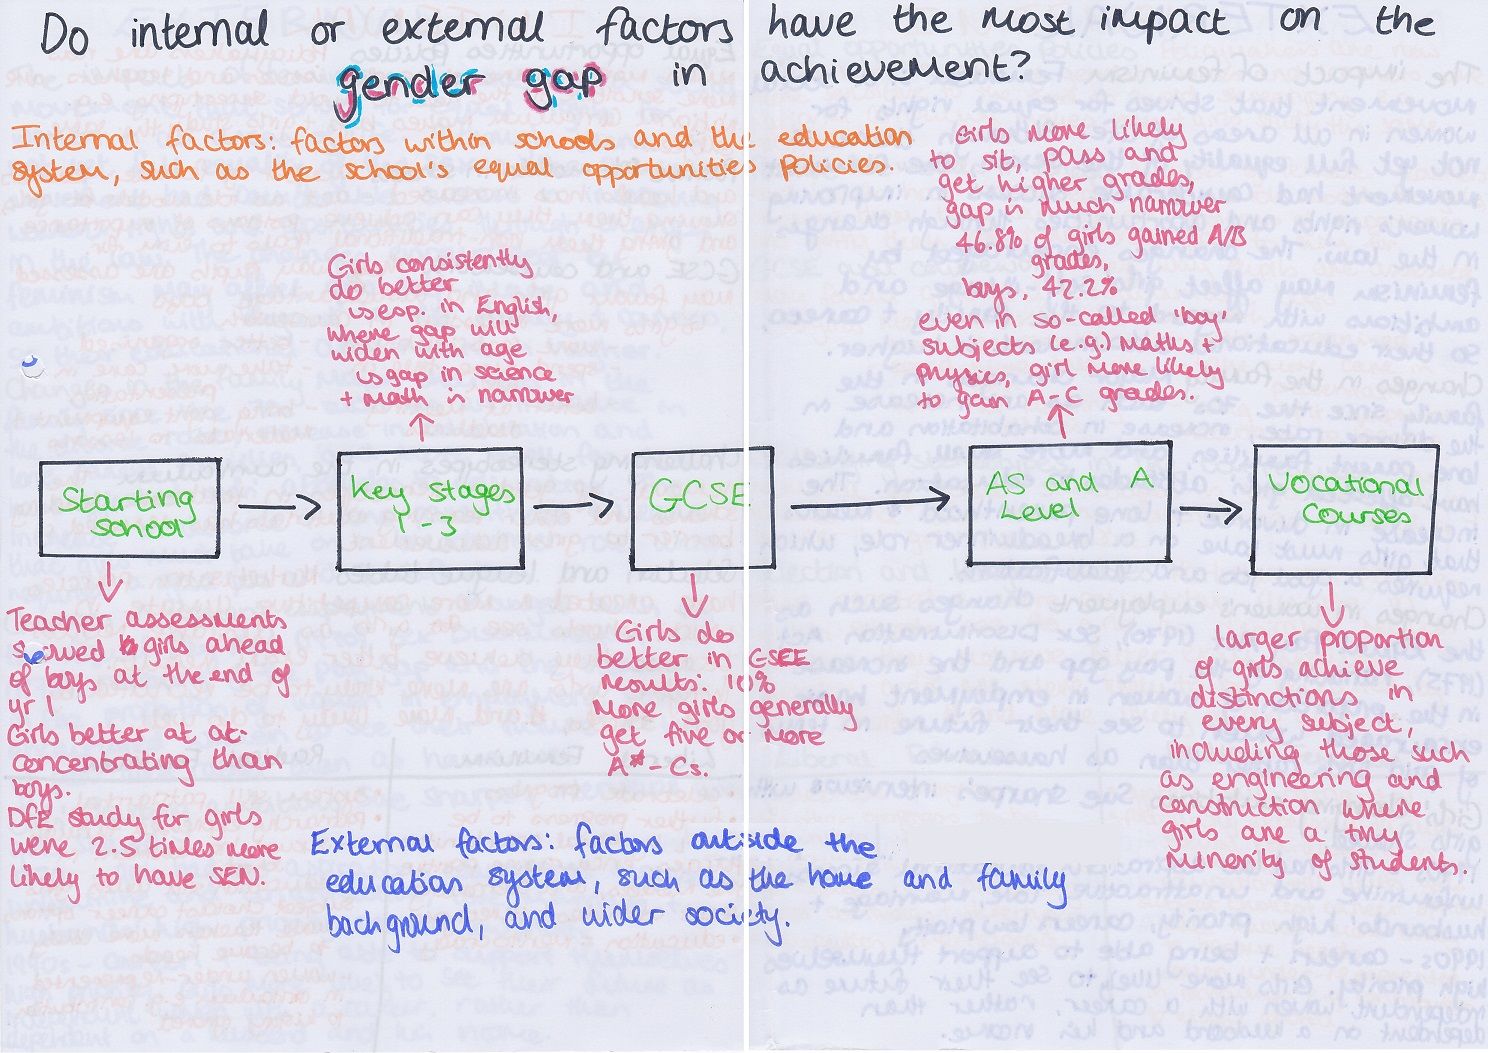 Do internal or external factors have the most impact on the
gender gap in achievement?
Internal factors: factors within schools and the education
system, such as the school's equal opportunities policies.
Girls more likely
to sit, pass and
get higher grades,
gap is much narrower
46.8% of girls gained A/B
grades,
boys, 42.2%
even in so-called 'boy'
subjects (e.g.) maths +
physics, girl more likely
to gain A-C grades.
Girls consistently
do better
↳ esp. in English,
where gap will
widen with age
↳ gap in science
+ math is narrower
Starting
school
Key Stages
1-3
GCSE
AS and A
Level
Vocational
Courses
Teacher assessments
girls ahead
of boys at the end of
yr 1
Girls better at at
concentrating than
boys.
DfE study for girls
were 2.5 times more
likely to have SEN.
Girls do
better in GSEE
results: 10%
more girls generally
get five or more
A*-Cs.
larger proportion
of girls achieve
distinctions in
every subject,
including those such
as engineering and
construction where
girls are a tiny
minority of students.
External factors: factors outside the
education system, such as the home and family
background, and wider society.